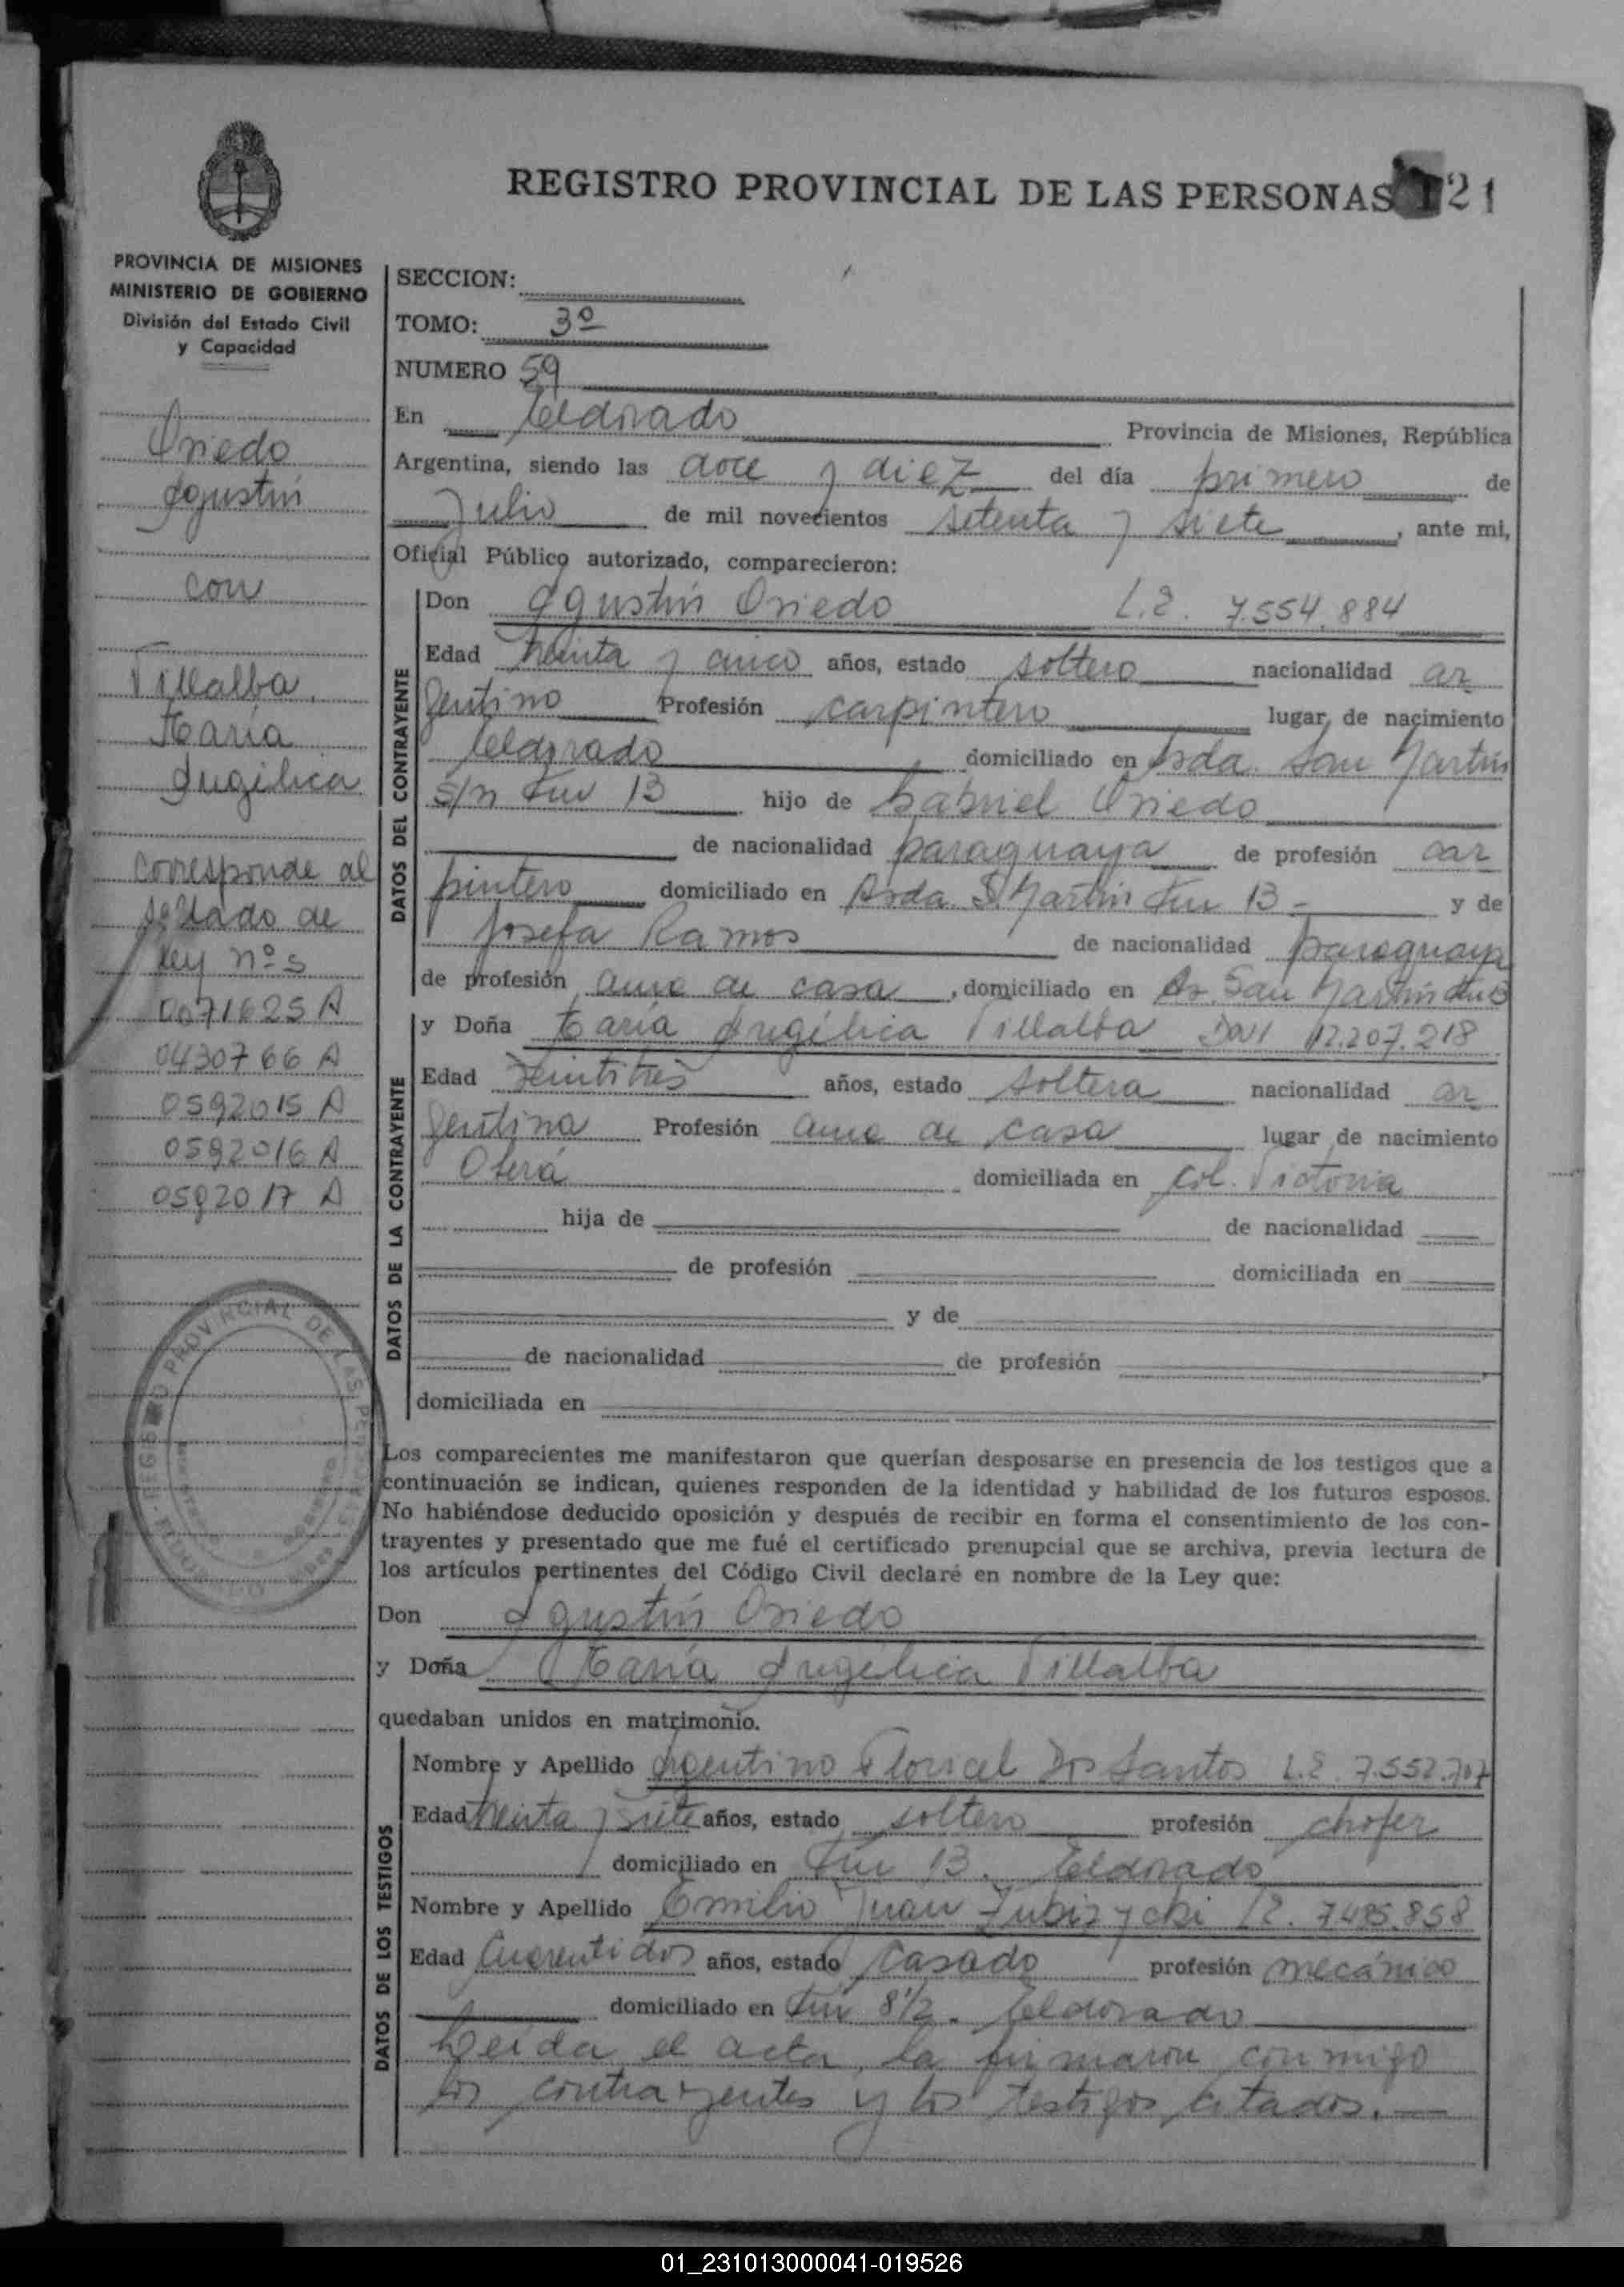 REGISTRO PROVINCIAL DE LAS PERSONAS 121
PROVINCIA DE MISIONES
MINISTERIO DE GOBIERNO
División del Estado Civil
y Capacidad
Oviedo
Agustín
con
Villalba
María
Angélica
corresponde al
sellado de
ley nºs
0071625 A
0430766 A
0592015 A
0592016 A
0592017 A
REGISTRO PROVINCIAL DE LAS PERSONAS
SECCION:
TOMO: 3º
NUMERO 59
En Eldorado Provincia de Misiones, República
Argentina, siendo las doce y diez del día primero de
Julio de mil novecientos setenta y siete, ante mi,
Oficial Público autorizado, comparecieron:
DATOS DEL CONTRAYENTE
Don Agustín Oviedo L.E. 7.554.884
Edad treinta y cinco años, estado soltero nacionalidad ar
gentino Profesión carpintero lugar de nacimiento
Eldorado domiciliado en Avda. San Martín
s/n Km 13 hijo de Gabriel Oviedo
de nacionalidad paraguaya de profesión car
pintero domiciliado en Avda. S. Martín Km 13 - y de
Josefa Ramos de nacionalidad paraguaya
de profesión ama de casa, domiciliado en Av. San Martín Km 13
DATOS DE LA CONTRAYENTE
y Doña María Angélica Villalba DNI 12.207.218
Edad Veintitrés años, estado soltera nacionalidad ar
gentina Profesión ama de casa lugar de nacimiento
Oberá domiciliada en Col. Victoria
hija de de nacionalidad
de profesión domiciliada en
y de
de nacionalidad de profesión
domiciliada en
Los comparecientes me manifestaron que querían desposarse en presencia de los testigos que a
continuación se indican, quienes responden de la identidad y habilidad de los futuros esposos.
No habiéndose deducido oposición y después de recibir en forma el consentimiento de los con-
trayentes y presentado que me fué el certificado prenupcial que se archiva, previa lectura de
los artículos pertinentes del Código Civil declaré en nombre de la Ley que:
Don Agustín Oviedo
y Doña María Angélica Villalba
quedaban unidos en matrimonio.
DATOS DE LOS TESTIGOS
Nombre y Apellido Argentino Floricel Dos Santos L.E. 7.552.707
Edad treinta y siete años, estado soltero profesión chofer
domiciliado en Km 13. Eldorado
Nombre y Apellido Emilio Juan LE. 7485.858
Edad Cuarentidos años, estado casado profesión mecánico
domiciliado en Km 8½. Eldorado
Leída el acta, la firmaron conmigo
los contrayentes y los testigos citados.
01_231013000041-019526